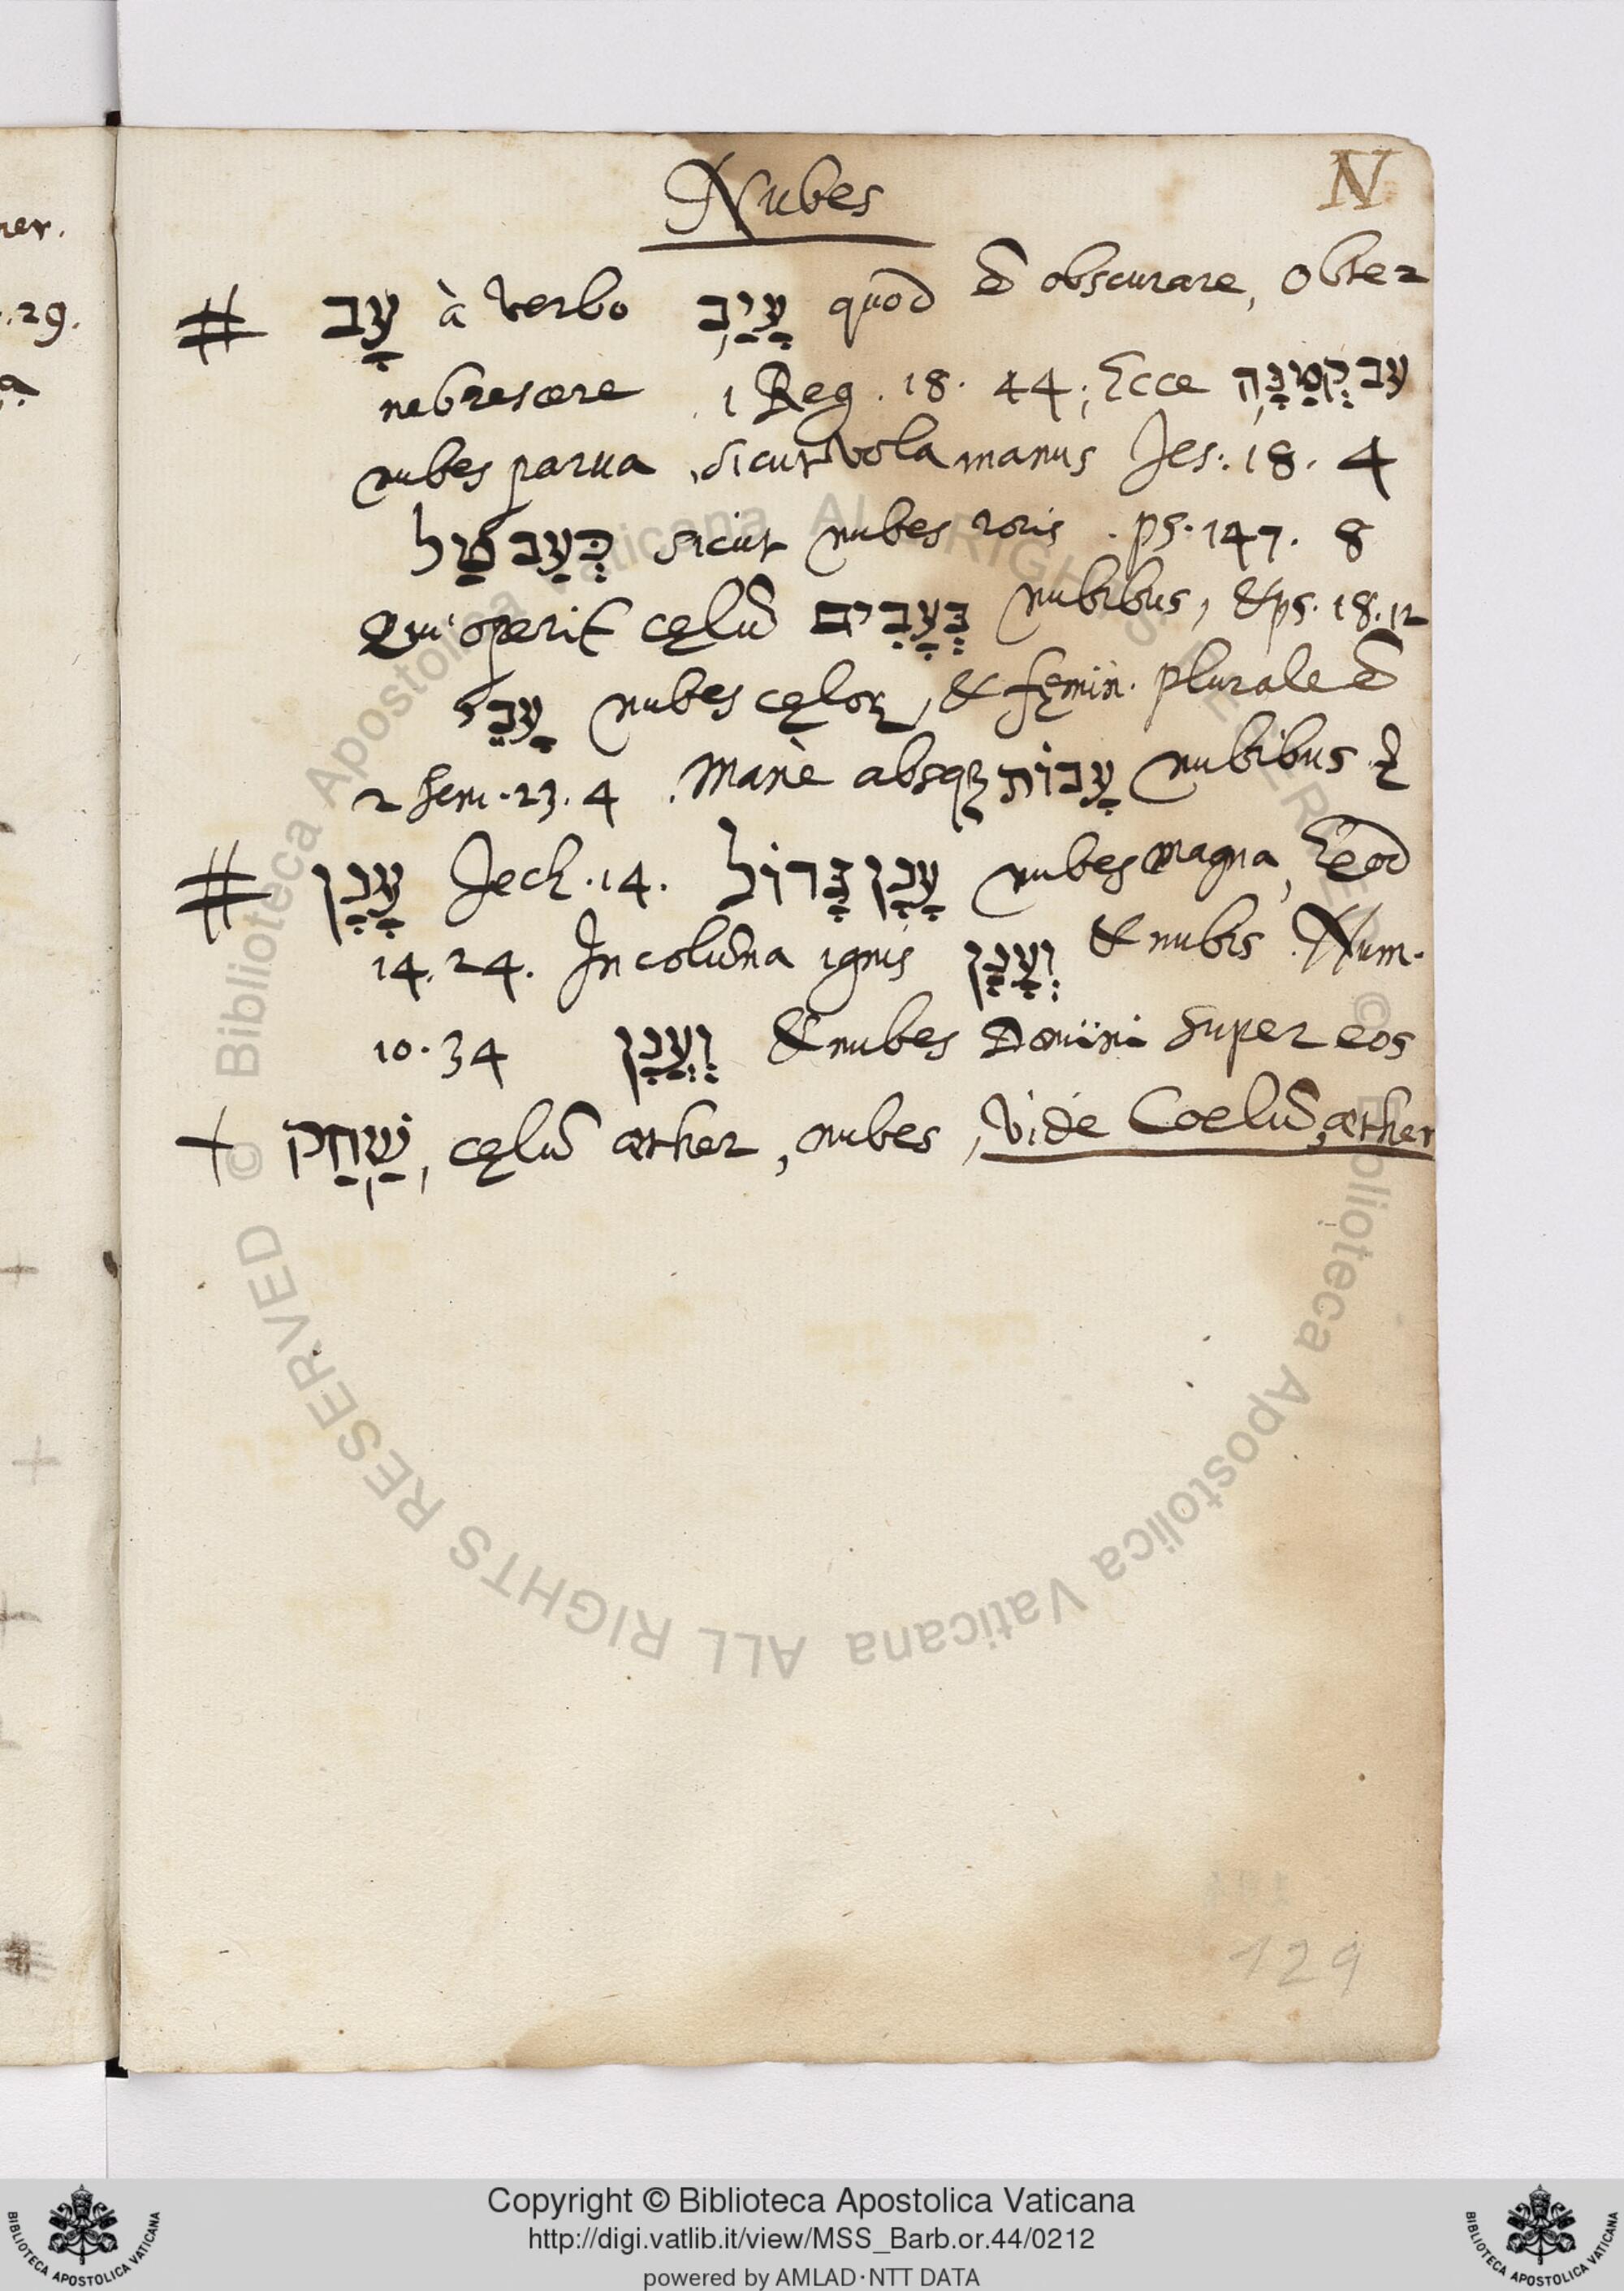 Nubes
N
# עָב à verbo עָיַב quod ē obscurare, obte=
nebrescere . 1 Reg . 18 . 44 ; Ecce עב קְטַנָּה
nubes parua , sicut vola manus Jes : 18 . 4
כְּעָב טַל sicut nubes roris . ps . 147 . 8
Qui operit cęlū בְּעָבִים nubibus, & ps . 18 . 12
עָבֵי nubes cęloꝝ, & fęmin . plurale ē
2 Sem . 23 . 4 . Manè absqꝫ עָבוֹת nubibus
# עָנָן Jech . 14 . עָנָן גָּדוֹל nubes magna, Eod
14 . 24 . In colūna ignis וְעָנָן & nubis . Num .
10 . 34 וַעֲנָן & nubes Domini super eos
+ שַׁחַק, cęlū æther, nubes, vide Coelū, æther
129
ner.
. 29 .
© Biblioteca Apostolica Vaticana ALL RIGHTS RESERVED © Biblioteca Apostolica Vaticana ALL RIGHTS RESERVED
Copyright © Biblioteca Apostolica Vaticana
http://digi.vatlib.it/view/MSS_Barb.or.44/0212
powered by AMLAD·NTT DATA
BIBLIOTECA APOSTOLICA VATICANA
BIBLIOTECA APOSTOLICA VATICANA